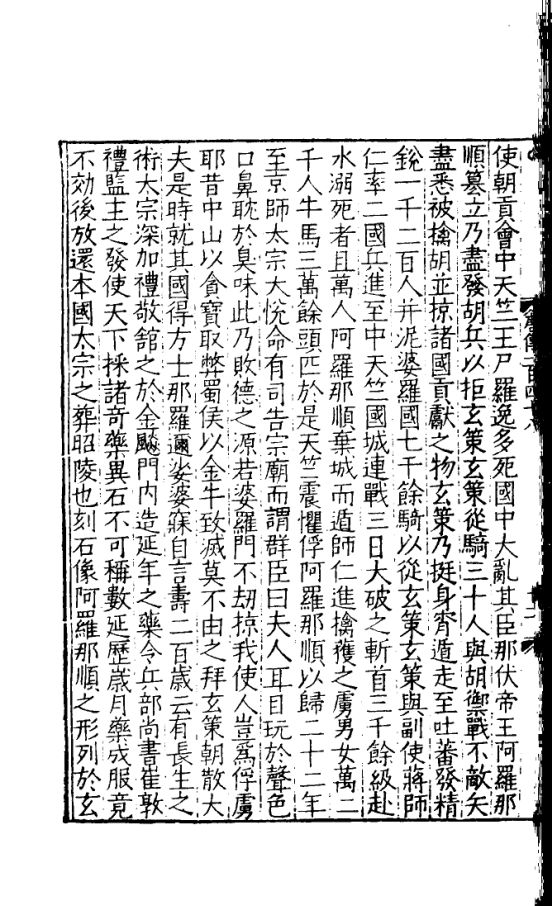 使朝貢會中天竺王尸羅逸多死國中大亂其臣那伏帝王阿羅那
順篡立乃盡發胡兵以拒玄策玄策從騎三十人與胡禦戰不敵矢
盡悉被擒胡並掠諸國貢獻之物玄策乃挺身宵遁走至吐蕃發精
銳一千二百人并泥婆羅國七千餘騎以從玄策玄策與副使蔣師
仁率二國兵進至中天竺國城連戰三日大破之斬首三千餘級赴
水溺死者且萬人阿羅那順棄城而遁師仁進擒獲之虜男女萬二
千人牛馬三萬餘頭匹於是天竺震懼俘阿羅那順以歸二十二年
至京師太宗大悅命有司告宗廟而謂群臣曰夫人耳目玩於聲色
口鼻耽於臭味此乃敗德之源若婆羅門不劫掠我使人豈為俘虜
耶昔中山以貪寶取弊蜀侯以金牛致滅莫不由之拜玄策朝散大
夫是時就其國得方士那羅邇娑婆寐自言壽二百歲云有長生之
術太宗深加禮敬舘之於金飈門內造延年之藥令兵部尚書崔敦
禮監主之發使天下採諸奇藥異石不可稱數延歷歲月藥成服竟
不効後放還本國太宗之葬昭陵也刻石像阿羅那順之形列於玄